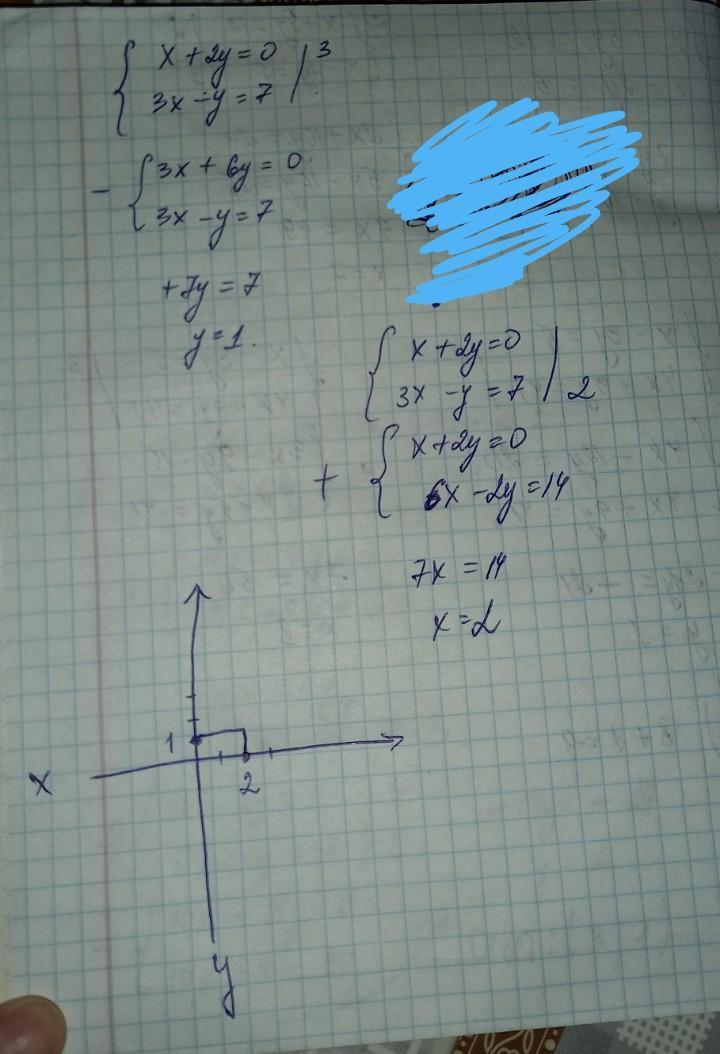 x + 2y = 0 | 3
3x - y = 7
- 3x + 6y = 0
3x - y = 7
+7y = 7
y = 1.
x + 2y = 0
3x - y = 7 | 2
+ x + 2y = 0
6x - 2y = 14
7x = 14
x = 2
1
x
2
y